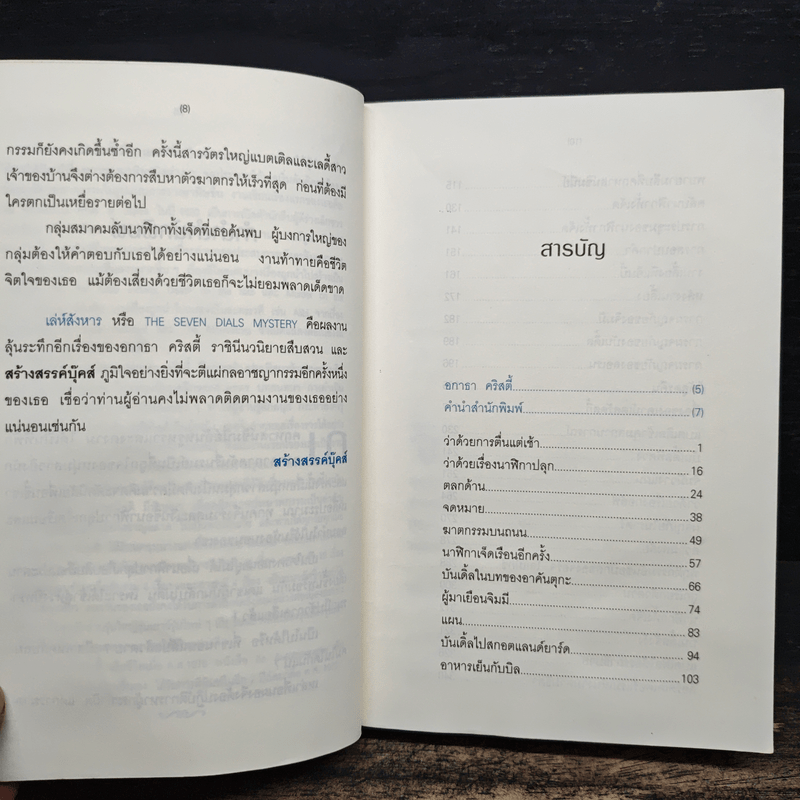 (8)
กรรมก็ยังคงเกิดขึ้นซ้ำอีก ครั้งนี้สารวัตรใหญ่แบตเติลและเลดี้สาว
เจ้าของบ้านจึงต่างต้องการสืบหาตัวฆาตกรให้เร็วที่สุด ก่อนที่ต้องมี
ใครตกเป็นเหยื่อรายต่อไป
กลุ่มสมาคมลับนาฬิกาทั้งเจ็ดที่เธอค้นพบ ผู้บงการใหญ่ของ
กลุ่มต้องให้คำตอบกับเธอได้อย่างแน่นอน งานท้าทายคือชีวิต
จิตใจของเธอ แม้ต้องเสี่ยงด้วยชีวิตเธอก็จะไม่ยอมพลาดเด็ดขาด
เล่ห์สังหาร หรือ THE SEVEN DIALS MYSTERY คือผลงาน
ลุ้นระทึกอีกเรื่องของอกาธา คริสตี้ ราชินีนวนิยายสืบสวน และ
สร้างสรรค์บุ๊คส์ ภูมิใจอย่างยิ่งที่จะตีแผ่กลอาชญากรรมอีกครั้งหนึ่ง
ของเธอ เชื่อว่าท่านผู้อ่านคงไม่พลาดติดตามงานของเธออย่าง
แน่นอนเช่นกัน
สร้างสรรค์บุ๊คส์
สารบัญ
อกาธา คริสตี้ (5)
คำนำสำนักพิมพ์ (7)
ว่าด้วยการตื่นแต่เช้า 1
ว่าด้วยเรื่องนาฬิกาปลุก 16
ตลกด้าน 24
จดหมาย 38
ฆาตกรรมบนถนน 49
นาฬิกาเจ็ดเรือนอีกครั้ง 57
บันเดิ้ลในบทของอาคันตุกะ 66
ผู้มาเยือนจิมมี 74
แผน 83
บันเดิ้ลไปสกอตแลนด์ยาร์ด 94
อาหารเย็นกับบิล 103